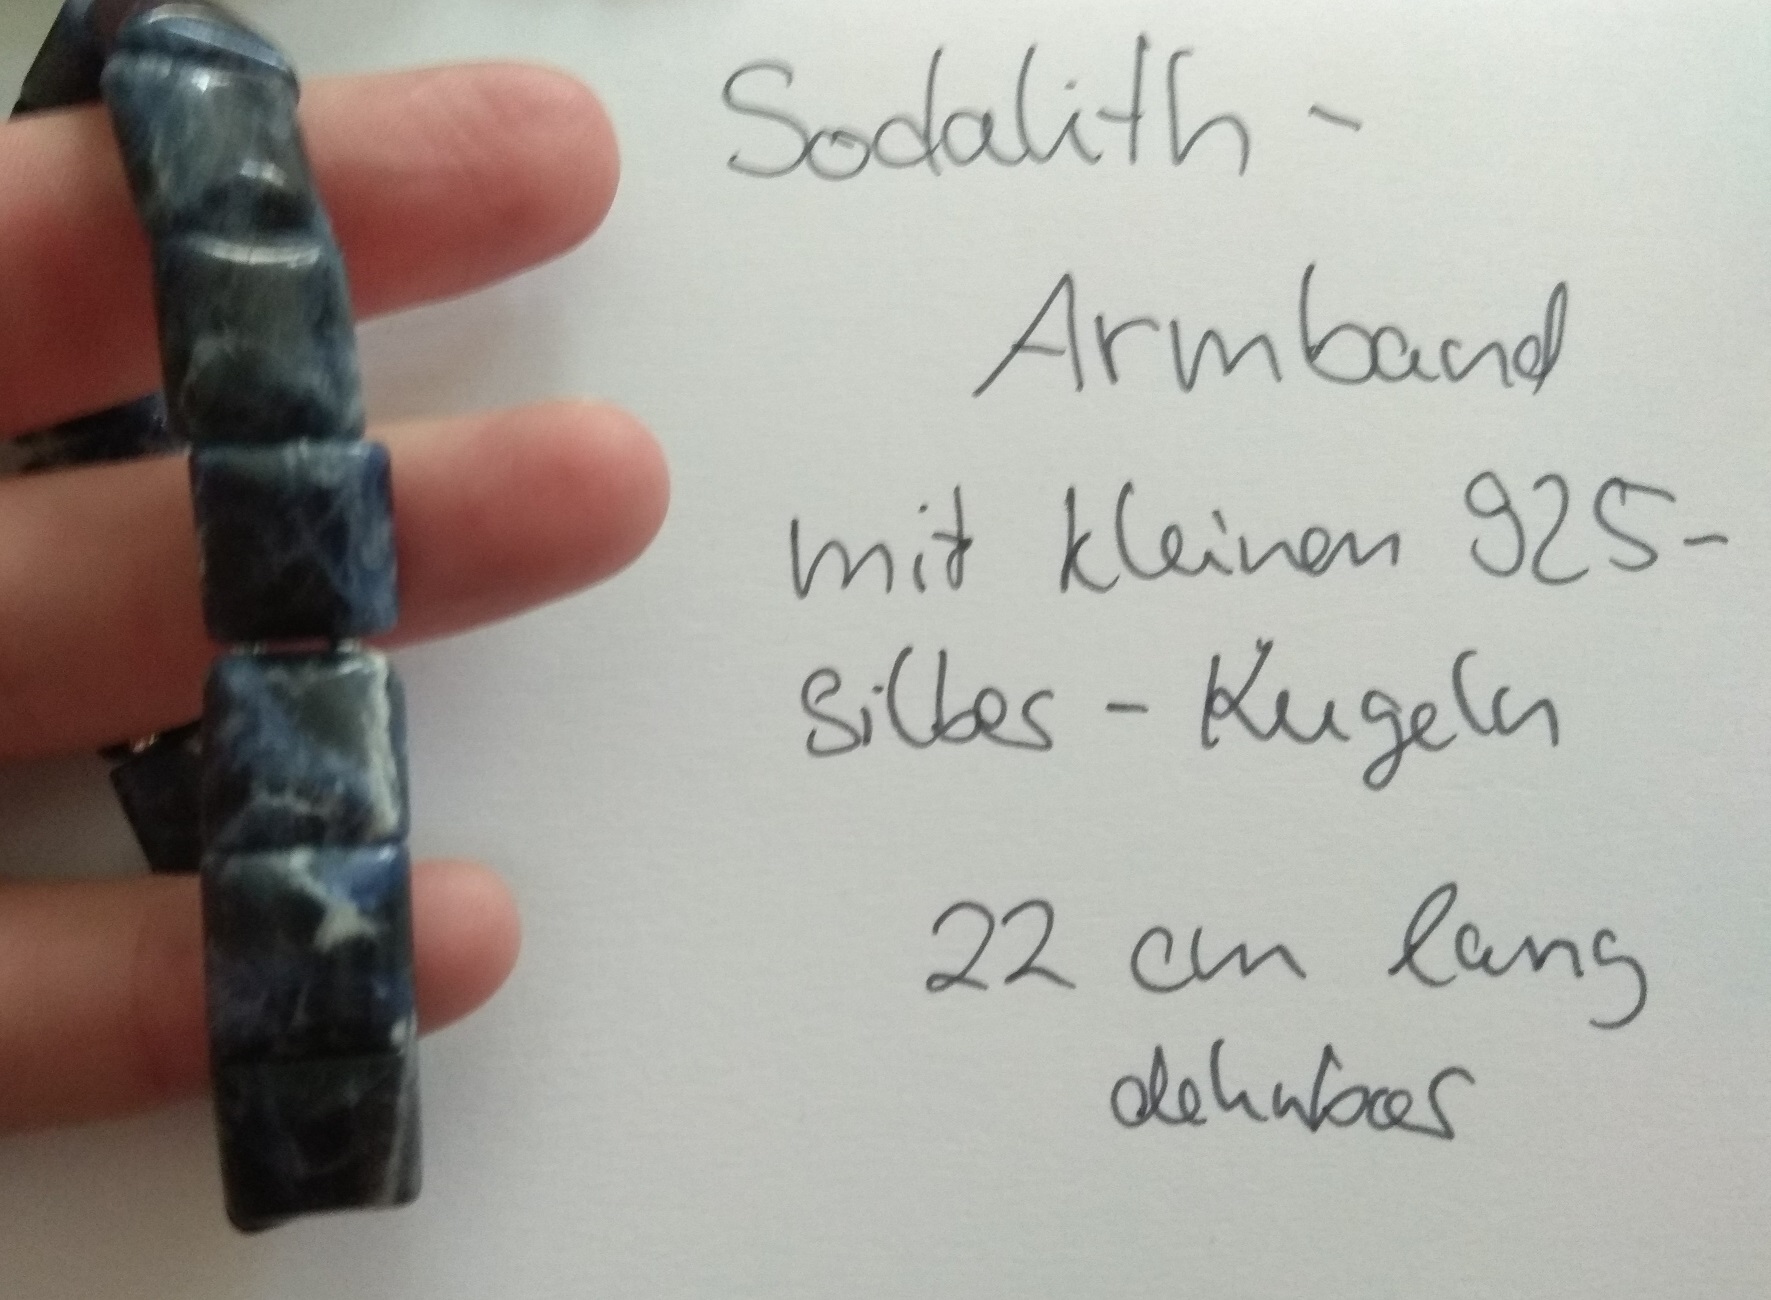 Sodalith -
Armband
mit kleinen 925-
Silber - Kugeln
22 cm lang
dehnbar